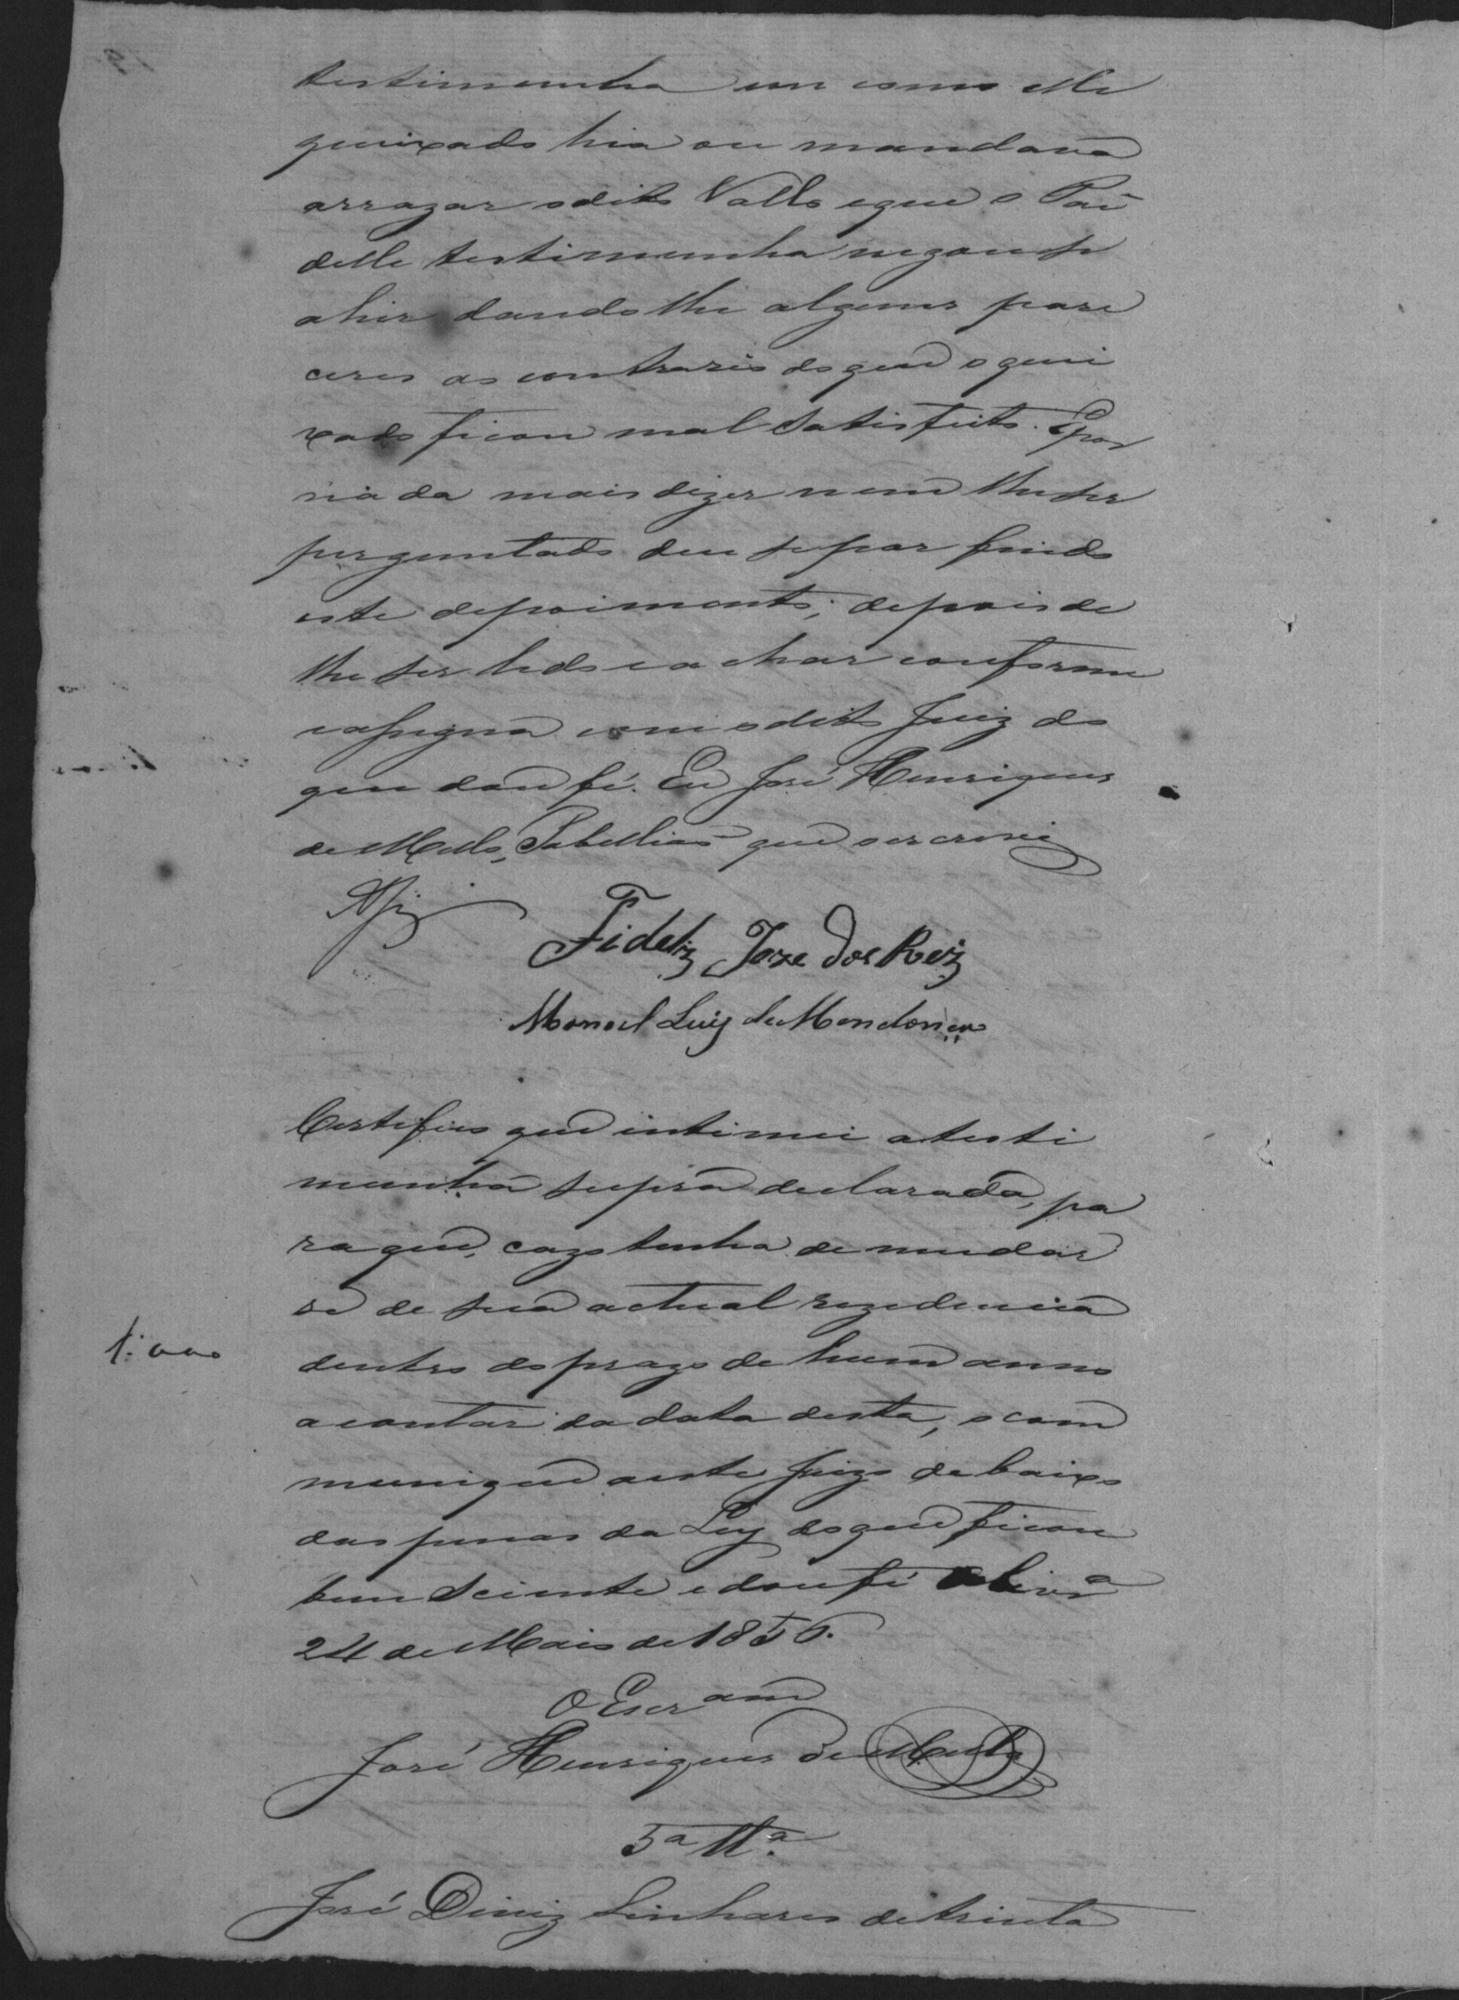 testimunha um como elle
queixado hia ou mandava
arrazar o dito Vallo e que o Pai
delle testimunha negou se
a hir dando lhe alguns pare
ceres ao contrario do que o quei
xado ficou mal satisfeito. E por
nada mais dizer nem lhe ser
perguntado deu se por findo
este depoimento; depois de
lhe ser lido e a char conforme
e assigna com o dito Juiz do
que dou fé. Eu José Henriques
de Mello, Tabellião que o escrevi
Fideliz Joze dos Reiz
Manoel Luiz de Mendonça
Certifico que intimei a testi
munha supra declarada, pa
ra que, cazo tenha de mudar
se de sua actual rezidencia
dentro do prazo de hum anno
a contar da data desta, o com
munique a este Juizo debaixo
das penas da Ley do que ficou
bem sciente e dou fé
24 de Maio de 1856.
1:000
O Escr.am
José Henriques de Mello
5ª Tta.
José Diniz Linhares de trinta